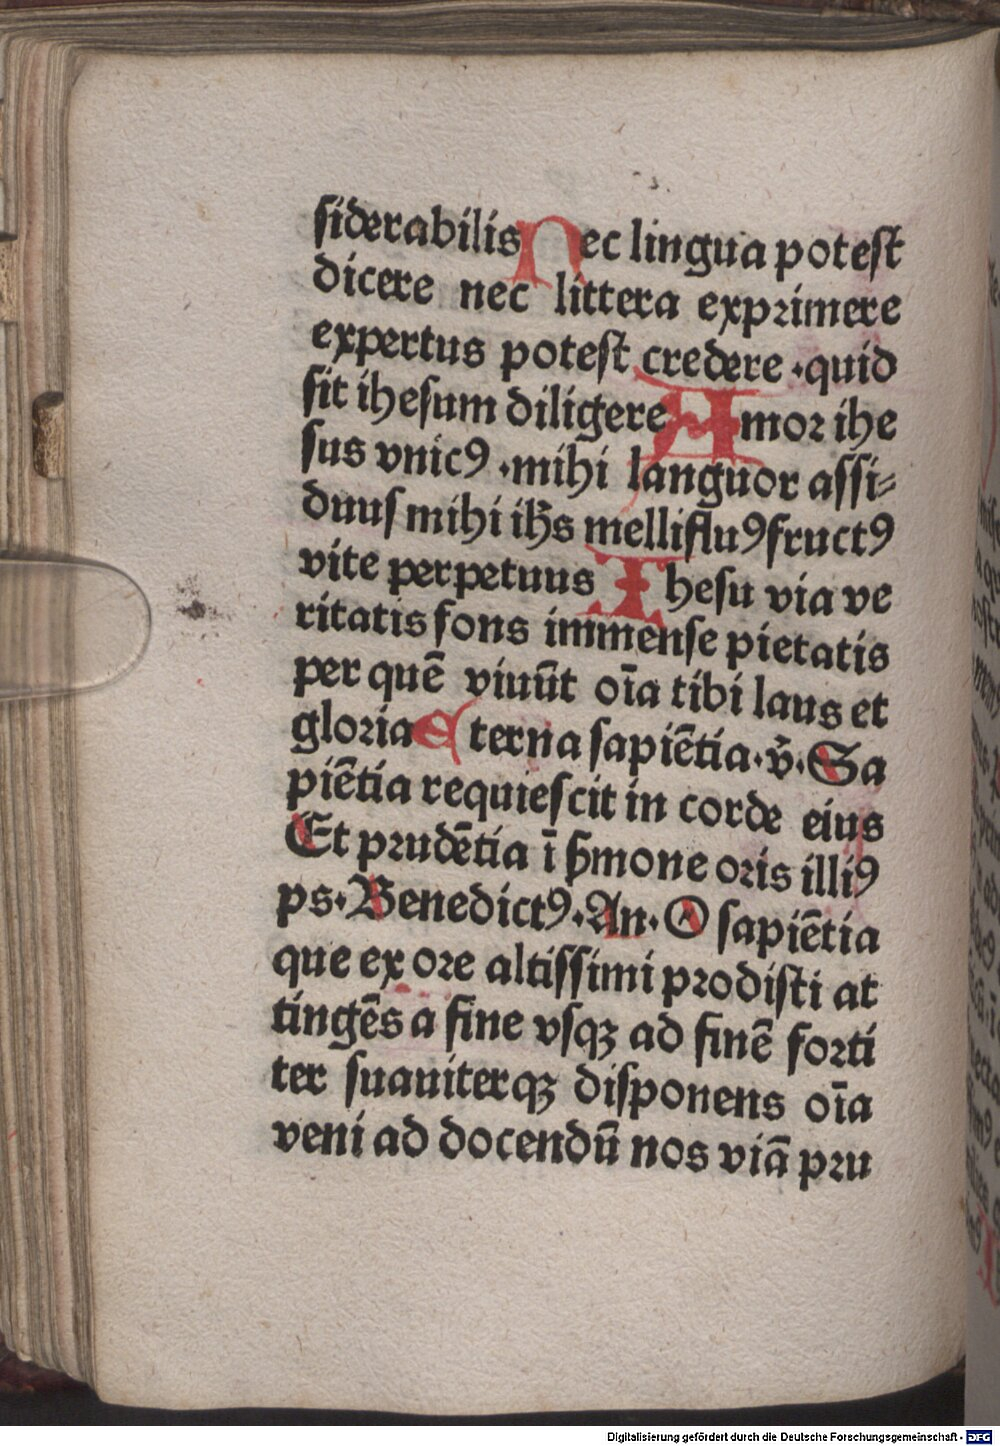 siderabilis Nec lingua potest
dicere nec littera exprimere
expertus potest credere · quid
sit ihesum diligere Amor ihe
sus vnicꝰ · mihi languor assi⸗
duus mihi ihs̄ mellifluꝰ fructꝰ
vite perpetuus Ihesu via ve
ritatis fons immense pietatis
per quē viuūt oīa tibi laus et
gloria Eterna sapiētia · v̄. Sa
piētia requiescit in corde eius
Et prudētia ī ẜmone oris illiꝰ
ps · Benedictꝰ. An. O sapiētia
que ex ore altissimi prodisti at
tingēs a fine vsqꝫ ad finē forti
ter suauiterqꝫ disponens oīa
veni ad docendū nos viā pru
Digitalisierung gefördert durch die Deutsche Forschungsgemeinschaft - DFG